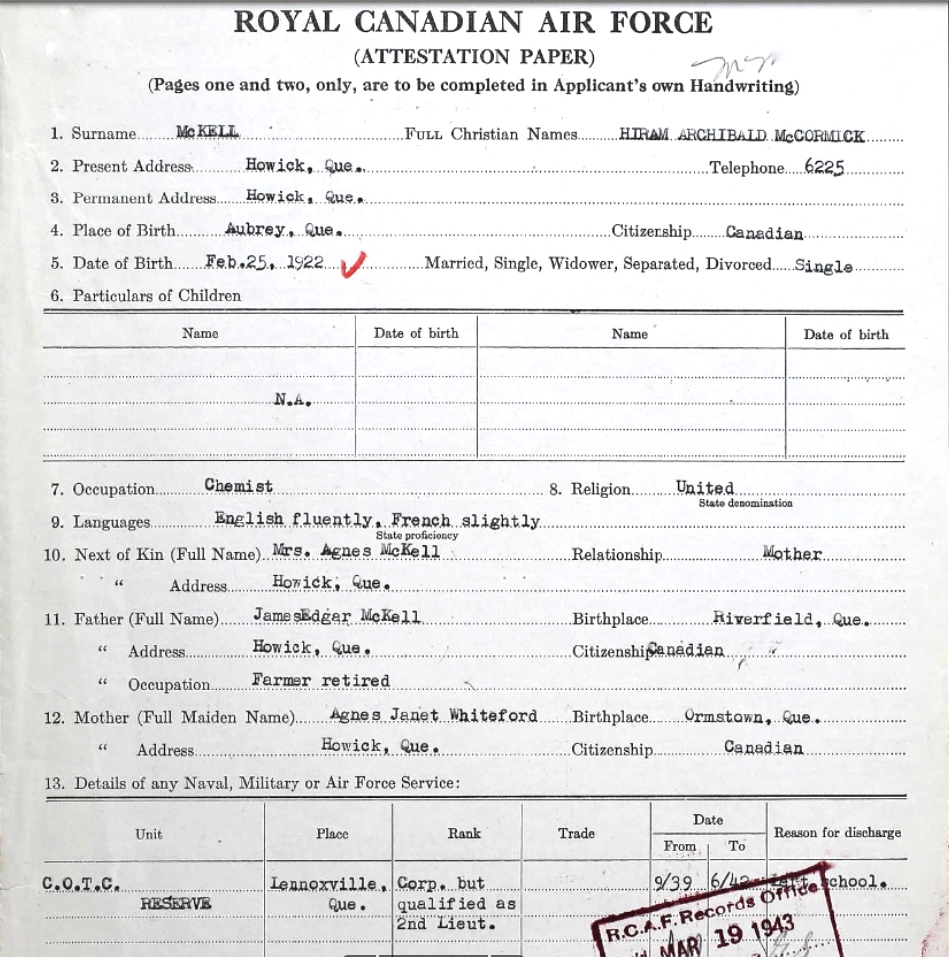 ROYAL CANADIAN AIR FORCE
(ATTESTATION PAPER)
(Pages one and two, only, are to be completed in Applicant's own Handwriting)
1. Surname McKELL FULL Christian Names HIRAM ARCHIBALD McCORMICK
2. Present Address Howick, Que. Telephone 6225
3. Permanent Address Howick, Que.
4. Place of Birth Aubrey, Que. Citizenship Canadian
5. Date of Birth Feb.25, 1922 Married, Single, Widower, Separated, Divorced Single
6. Particulars of Children
Name Date of birth Name Date of birth
N.A.
7. Occupation Chemist 8. Religion United
State denomination
9. Languages English fluently, French slightly
State proficiency
10. Next of Kin (Full Name) Mrs. Agnes McKell Relationship Mother
“ Address Howick, Que.
11. Father (Full Name) JamesEdgar McKell Birthplace Riverfield, Que.
“ Address Howick, Que. Citizenship Canadian
“ Occupation Farmer retired
12. Mother (Full Maiden Name) Agnes Janet Whiteford Birthplace Ormstown, Que.
“ Address Howick, Que. Citizenship Canadian
13. Details of any Naval, Military or Air Force Service:
Unit Place Rank Trade Date Reason for discharge
From To
C.O.T.C. Lennoxville, Corp. but 9/39 6/42 school.
RESERVE Que. qualified as
2nd Lieut.
R.C.A.F. Records Office
MAR 19 1943